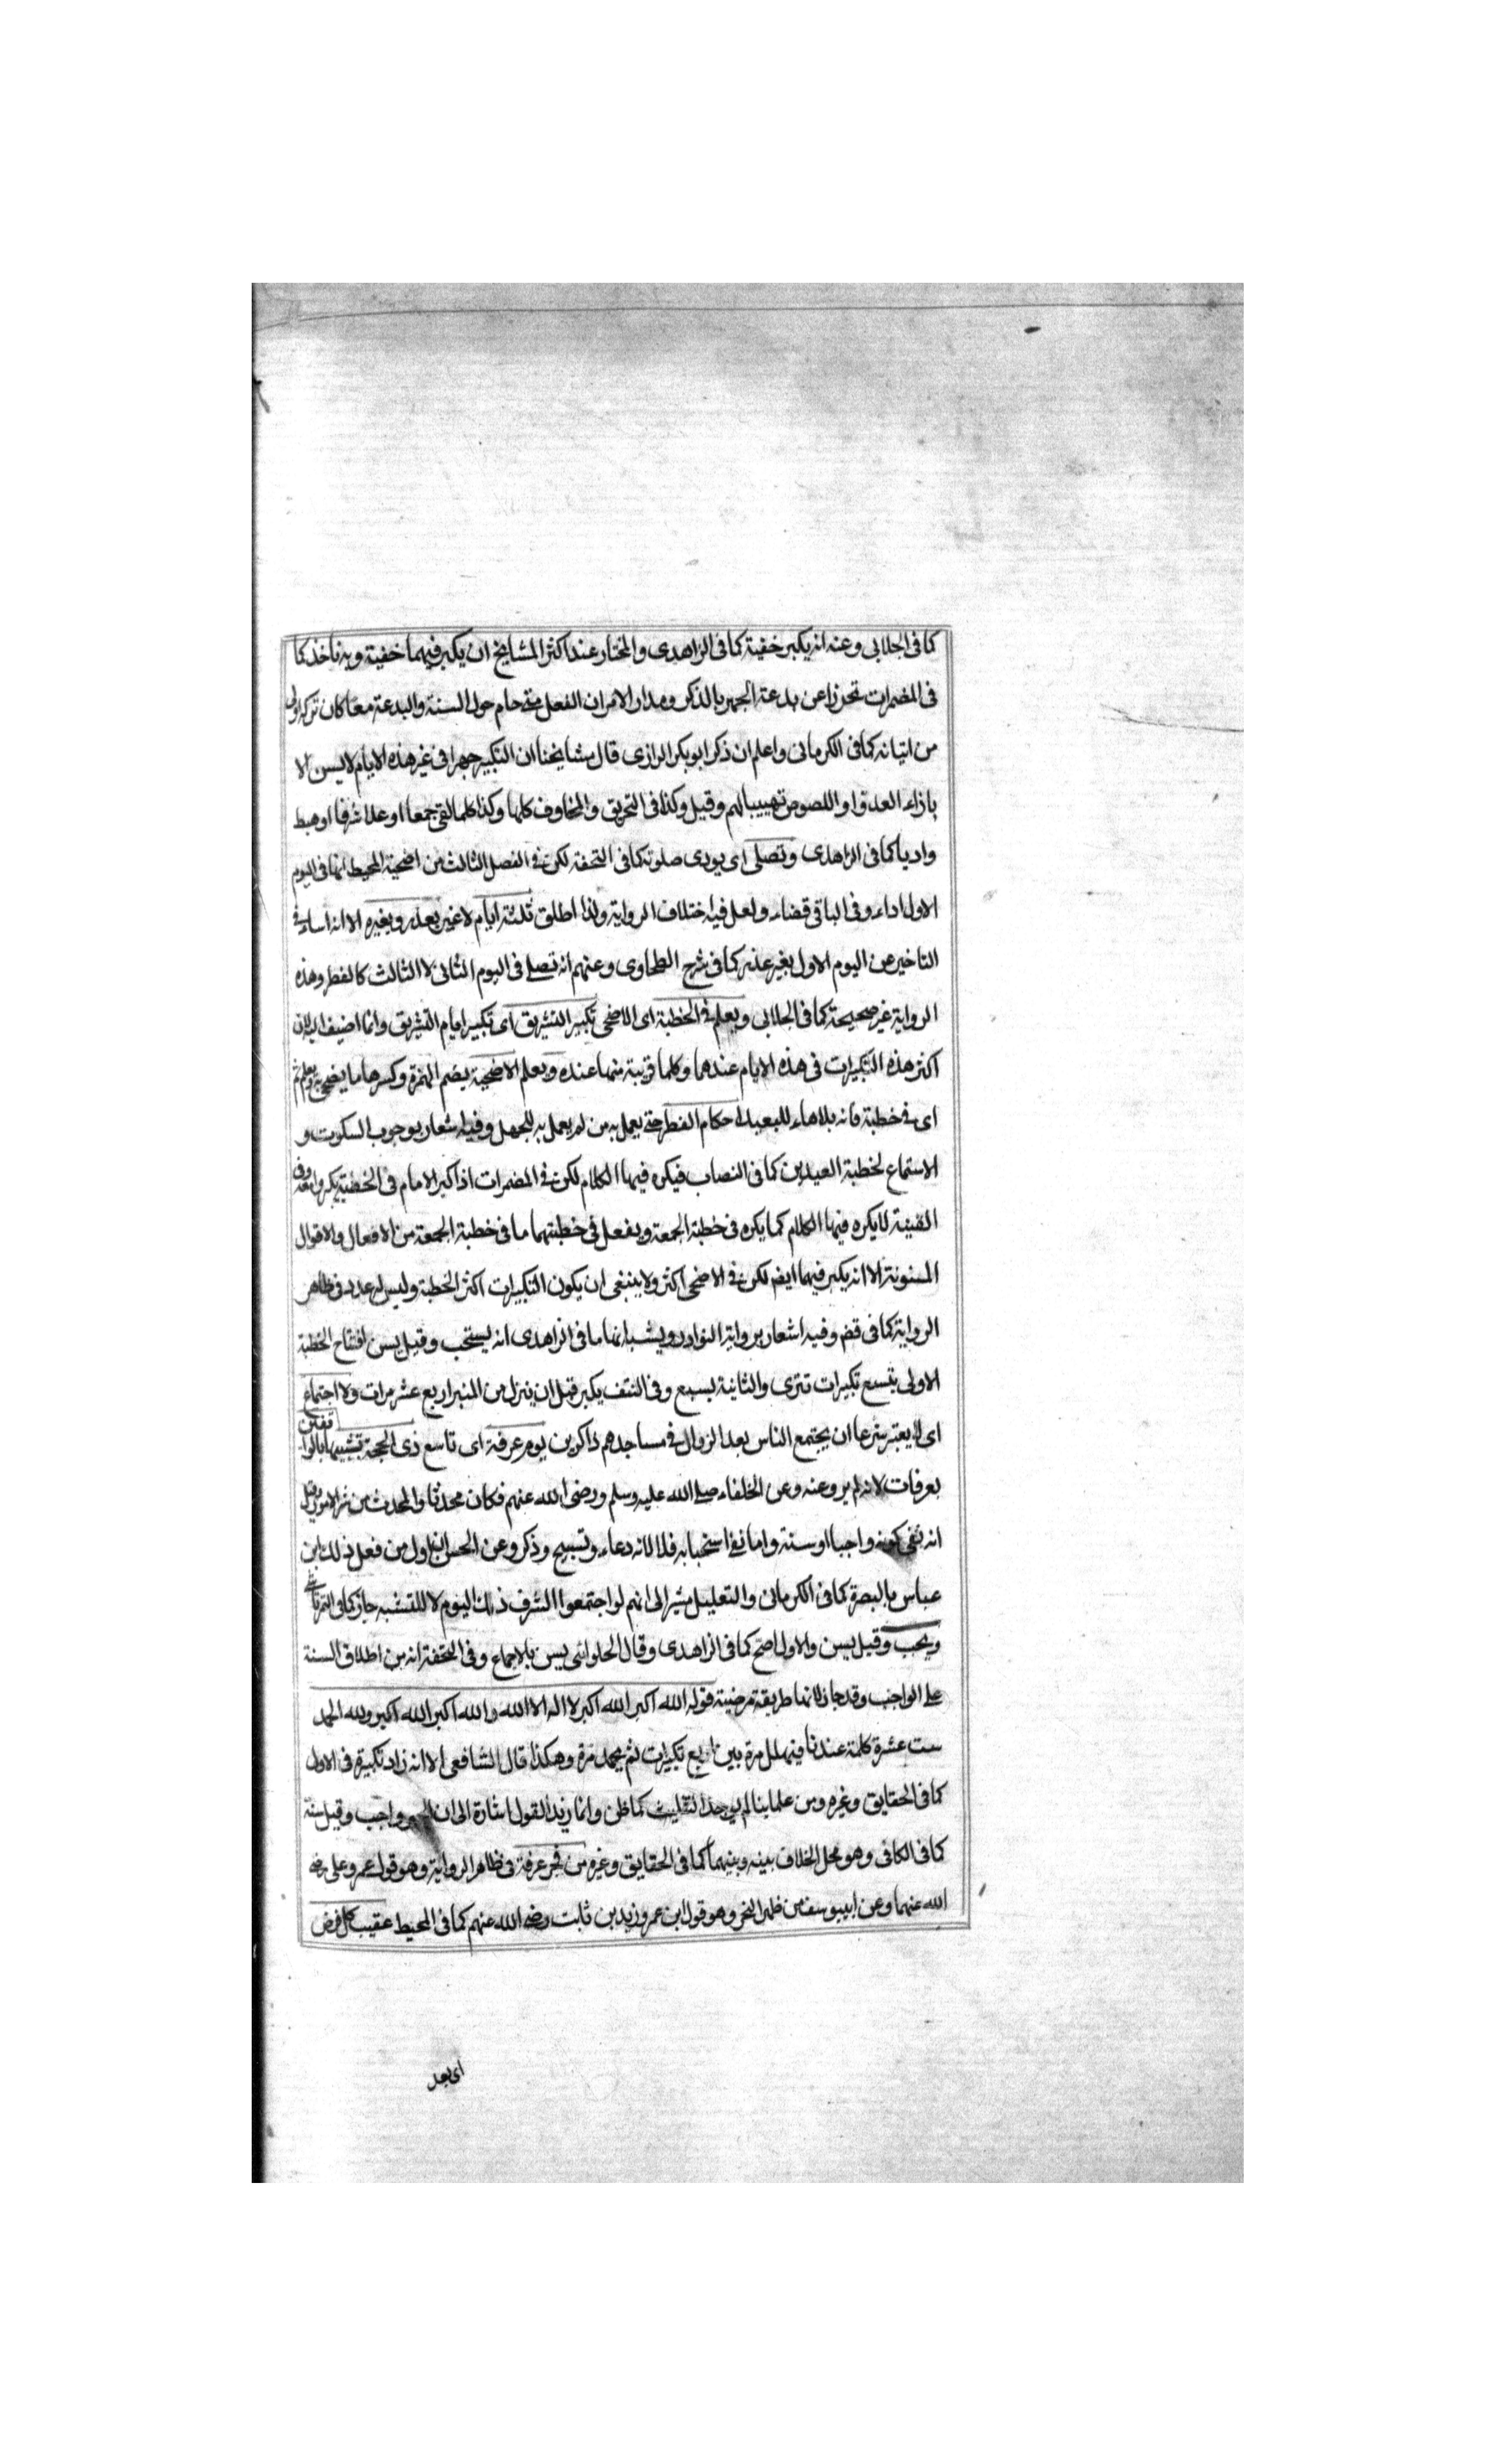 كما فى الجلابى وعنه انه يكبر خفية كما فى الزاهدى والمختار عند اكثر المشايخ ان يكبر فيهما خفية وبه ناخذ كما
فى المضمرات تحرزا عن بدعة الجهر بالذكر ومدار الامر ان الفعل متى حام حول السنة والبدعة معا كان تركه اولى
من اتيانه كما فى الكرمانى واعلم ان ذكر ابو بكر الرازى قال مشايخنا ان التكبير جهرا فى غير هذه الايام لا يسن الا
بازاء العدو او اللصوص تهييبا لهم وقيل وكذا فى الحريق والمخاوف كلها وكذا كلما لقى جمعا او علا شرفا او هبط
واديا كما فى الزاهدى وتصلى اى يودى صلوته كما فى التحفة لكن فى الفصل الثالث من اضحية المحيط انها فى اليوم
الاول اداء وفى الباقى قضاء ولعل فيه اختلاف الرواية ولذا اطلق ثلثة ايام لا غير بعذر وبغيره الا انه اساء فى
التاخير عن اليوم الاول بغير عذر كما فى شرح الطحاوى وعنهم انه تصلى فى اليوم الثانى لا الثالث كالفطر وهذه
الرواية غير صحيحة كما فى الجلابى ويعلم فى الخطبة اى الاضحى تكبير التشريق اى تكبير ايام التشريق وانما اضيف اليه لان
اكثر هذه التكبيرات فى هذه الايام عندهما وكلها قريبة منها عنده ويعلم الاضحية بضم الهمزة وكسرها ما يضحى به ويعلم ثم
اى فى خطبة فانه بلا هاء للبعيد احكام الفطر حتى يعمل به من لم يعمل به للجهل وفيه اشعار بوجوب السكوت و
الاستماع لخطبة العيدين كما فى النصاب فيكره فيها الكلام لكن فى المضمرات اذا كبر الامام فى الخطبة يكبروا معه وفى
القنية لا يكره فيها الكلام كما يكره فى خطبة الجمعة ويفعل فى خطبتهما ما فى خطبة الجمعة من الافعال والاقوال
المسنونة الا انه يكبر فيهما ايضم لكن فى الاضحى اكثر ولا ينبغى ان يكون التكبيرات اكثر الخطبة وليس له عدد فى ظاهر
الرواية كما فى قض وفيه اشعار برواية النوادر ويشبه انها ما فى الزاهدى انه يستحب وقيل يسن افتتاح الخطبة
الاولى بتسع تكبيرات تترى والثانية بسبع وفى النتف يكبر قبل ان ينزل من المنبر اربع عشر مرات ولا اجتماع
اى لا يعتبر شرعا ان يجتمع الناس بعد الزوال فى مساجدهم ذاكرين يوم عرفة اى تاسع ذى الحجة تشبيها بالواقفين
بعرفات لانه لم يرو عنه وعن الخلفاء صلى الله عليه وسلم ورضى الله عنهم فكان محدثا والمحدث من شر الامور وقيل
انه نفى كونه واجبا او سنة واما نفى استحبابه فلا لانه دعاء وتسبيح وذكر وعن الحسن ان اول من فعل ذلك ابن
عباس بالبصرة كما فى الكرمانى والتعليل مشير الى انهم لو اجتمعوا لشرف ذلك اليوم لا للتشبه جاز كما فى التمرتاشى
ويجب وقيل يسن والاول اصح كما فى الزاهدى وقال الحلوانى يسن بالاجماع وفى التحفة انه من اطلاق السنة
على الواجب وقد جاز لانها طريقة مرضية قوله الله اكبر الله اكبر لا اله الا الله والله اكبر الله اكبر ولله الحمد
ست عشرة كلمة عندنا فيهلل مرة بين اربع تكبيرات ثم يحمد مرة وهكذا قال الشافعى الا انه زاد تكبيرة فى الاول
كما فى الحقايق وغيره ومن علماينا لم يوجد التثليث كما ظن وانما زيد القول اشارة الى ان الجهر واجب وقيل سنة
كما فى الكافى وهو محل الخلاف بينه وبينهما كما فى الحقايق وغيره من فجر عرفة فى ظاهر الرواية وهو قول عمر وعلى رضى
الله عنهما وعن ابيوسف من ظهر النحر وهو قول ابن عمر وزيد بن ثابت رضى الله عنهم كما فى المحيط عقيب كل فرض
اى بعد